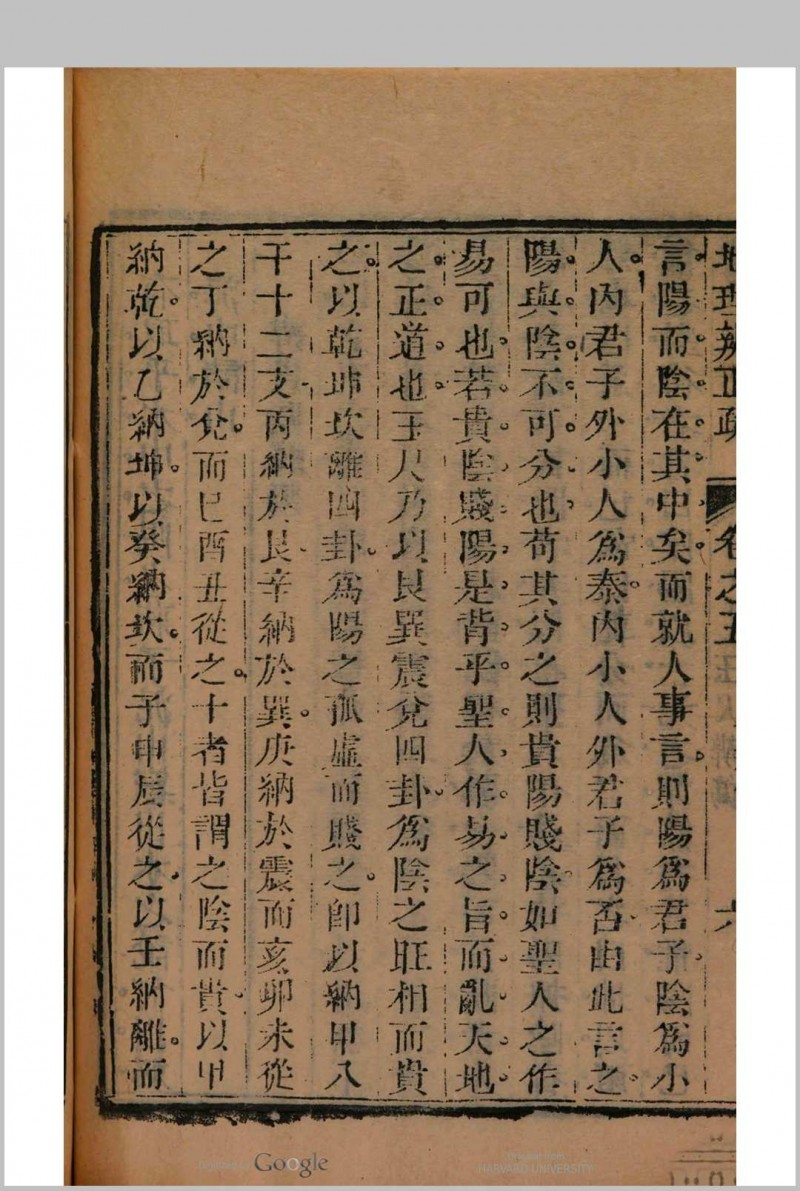 地理辨正疏 卷之五 六
言陽而陰在其中矣而就人事言則陽爲君子陰爲小
人內君子外小人爲泰內小人外君子爲否由此言之
陽與陰不可分也苟其分之則貴陽賤陰如聖人之作
易可也若貴陰賤陽是背乎聖人作易之旨而亂天地
之正道也玉尺乃以艮巽震兌四卦爲陰之旺相而貴
之以乾坤坎離四卦爲陽之孤虛而賤之卽以納甲八
干十二支丙納於艮辛納於巽庚納於震而亥卯未從
之丁納於兌而巳酉丑從之十者皆謂之陰而貴以甲
納乾以乙納坤以癸納坎而子申辰從之以壬納離而
Google
HARVARD UNIVERSITY